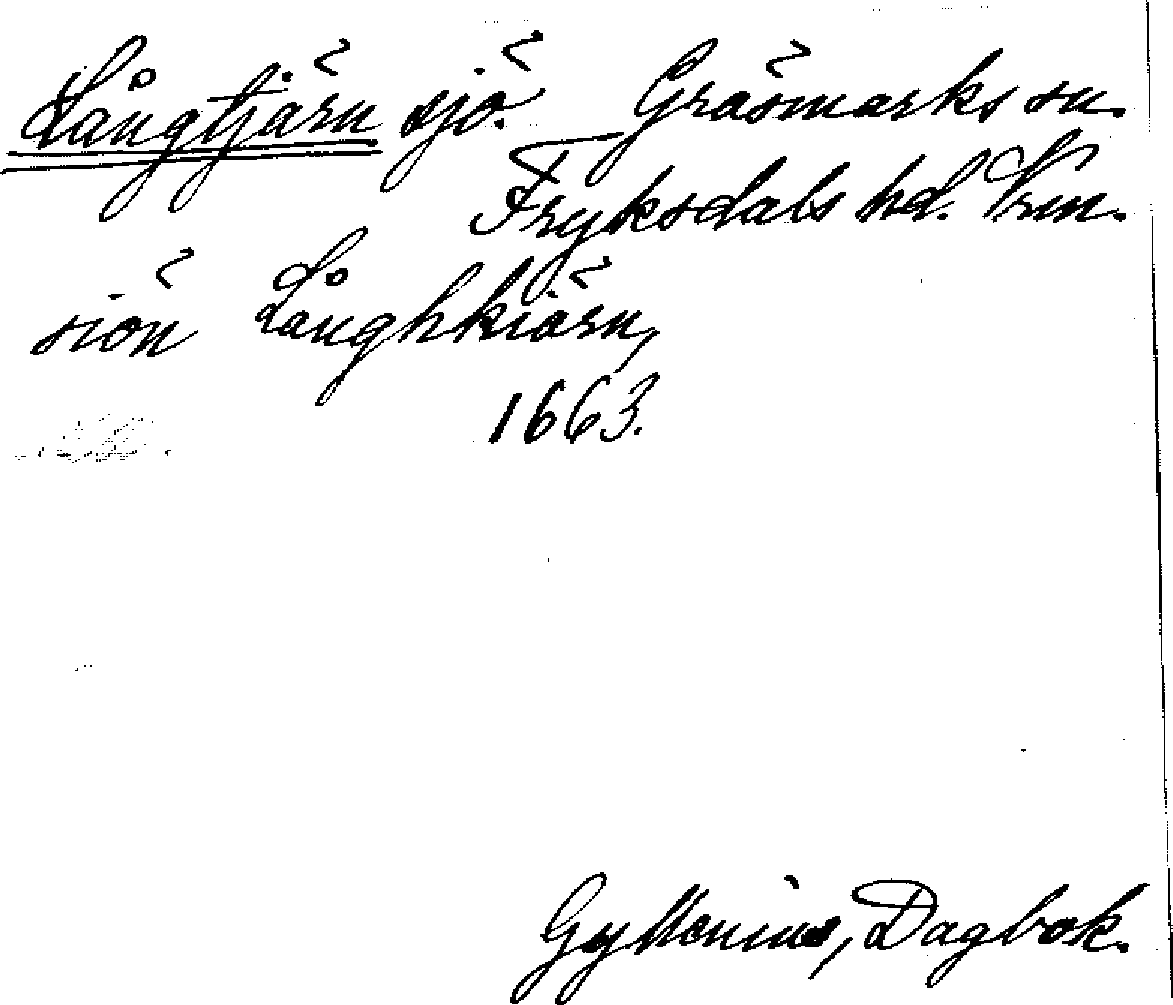 Långtjärn sjö. Gräsmarks sn.
Fryksdals hd. Vrm.
siön Långhkiärn,
1663.
Gyllenius, Dagbok.